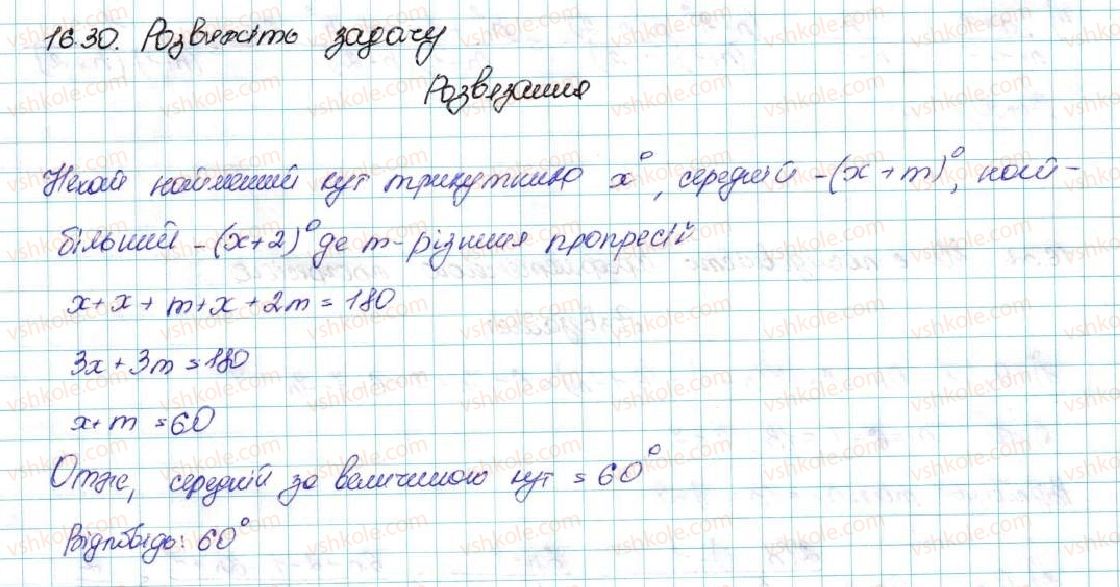 16.30. Розвяжіть задачу
Розвязання
Нехай найменший кут трикутника x°, середній - (x + m)°, най-
більший - (x+2)° де m - різниця прогресії
x + x + m + x + 2m = 180
3x + 3m = 180
x + m = 60
Отже, середній за величиною кут = 60°
Відповідь: 60°